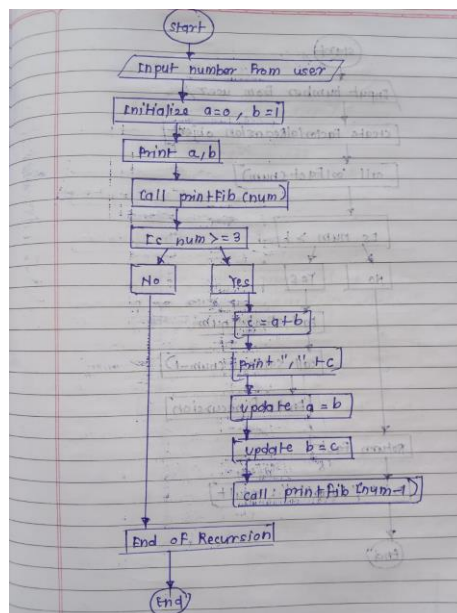 Start
Input number from user
Initialize a=0, b=1
Print a,b
Call printFib(num)
Is num >= 3
No
Yes
c = a+b
print "," + c
update a = b
update b = c
call printFib(num-1)
End of Recursion
End